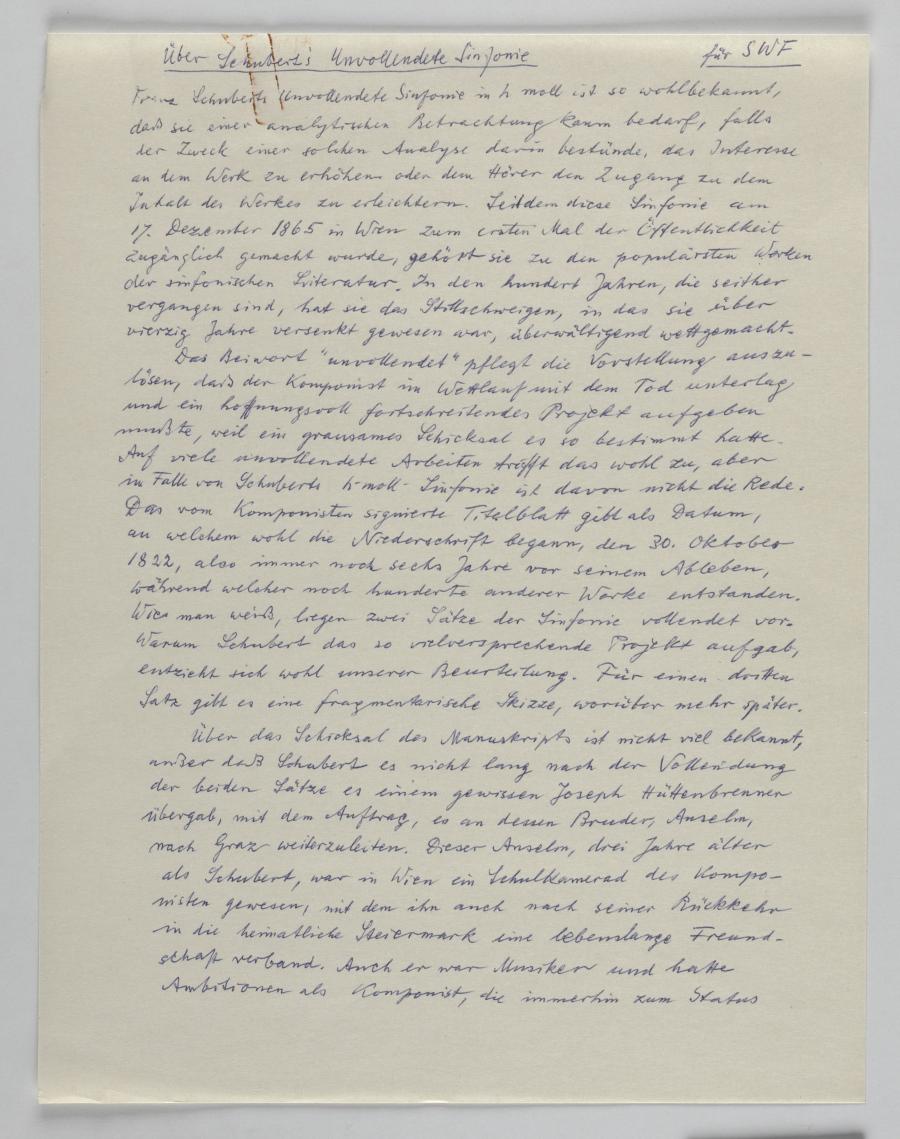 Über Schubert's Unvollendete Sinfonie für SWF
Franz Schuberts Unvollendete Sinfonie in h moll ist so wohlbekannt,
daß sie einer analytischen Betrachtung kaum bedarf, falls
der Zweck einer solchen Analyse darin bestünde, das Interesse
an dem Werk zu erhöhen oder dem Hörer den Zugang zu dem
Inhalt des Werkes zu erleichtern. Seitdem diese Sinfonie am
17. Dezember 1865 in Wien zum ersten Mal der Öffentlichkeit
zugänglich gemacht wurde, gehört sie zu den populärsten Werken
der sinfonischen Literatur. In den hundert Jahren, die seither
vergangen sind, hat sie das Stillschweigen, in das sie über
vierzig Jahre versenkt gewesen war, überwältigend wettgemacht.
Das Beiwort "unvollendet" pflegt die Vorstellung auszu-
lösen, daß der Komponist im Wettlauf mit dem Tod unterlag
und ein hoffnungsvoll fortschreitendes Projekt aufgeben
mußte, weil ein grausames Schicksal es so bestimmt hatte.
Auf viele unvollendete Arbeiten trifft das wohl zu, aber
im Falle von Schuberts h-moll-Sinfonie ist davon nicht die Rede.
Das vom Komponisten signierte Titelblatt gibt als Datum,
an welchem wohl die Niederschrift begann, den 30. Oktober
1822, also immer noch sechs Jahre vor seinem Ableben,
während welcher noch hunderte anderer Werke entstanden.
Wie man weiß, liegen zwei Sätze der Sinfonie vollendet vor.
Warum Schubert das so vielversprechende Projekt aufgab,
entzieht sich wohl unserer Beurteilung. Für einen dritten
Satz gibt es eine fragmentarische Skizze, worüber mehr später.
Über das Schicksal des Manuskripts ist nicht viel bekannt,
außer daß Schubert es nicht lang nach der Vollendung
der beiden Sätze es einem gewissen Joseph Hüttenbrenner
übergab, mit dem Auftrag, es an dessen Bruder, Anselm,
nach Graz weiterzuleiten. Dieser Anselm, drei Jahre älter
als Schubert, war in Wien ein Schulkamerad des Kompo-
nisten gewesen, mit dem ihn auch nach seiner Rückkehr
in die heimatliche Steiermark eine lebenslange Freund-
schaft verband. Auch er war Musiker und hatte
Ambitionen als Komponist, die immerhin zum Status